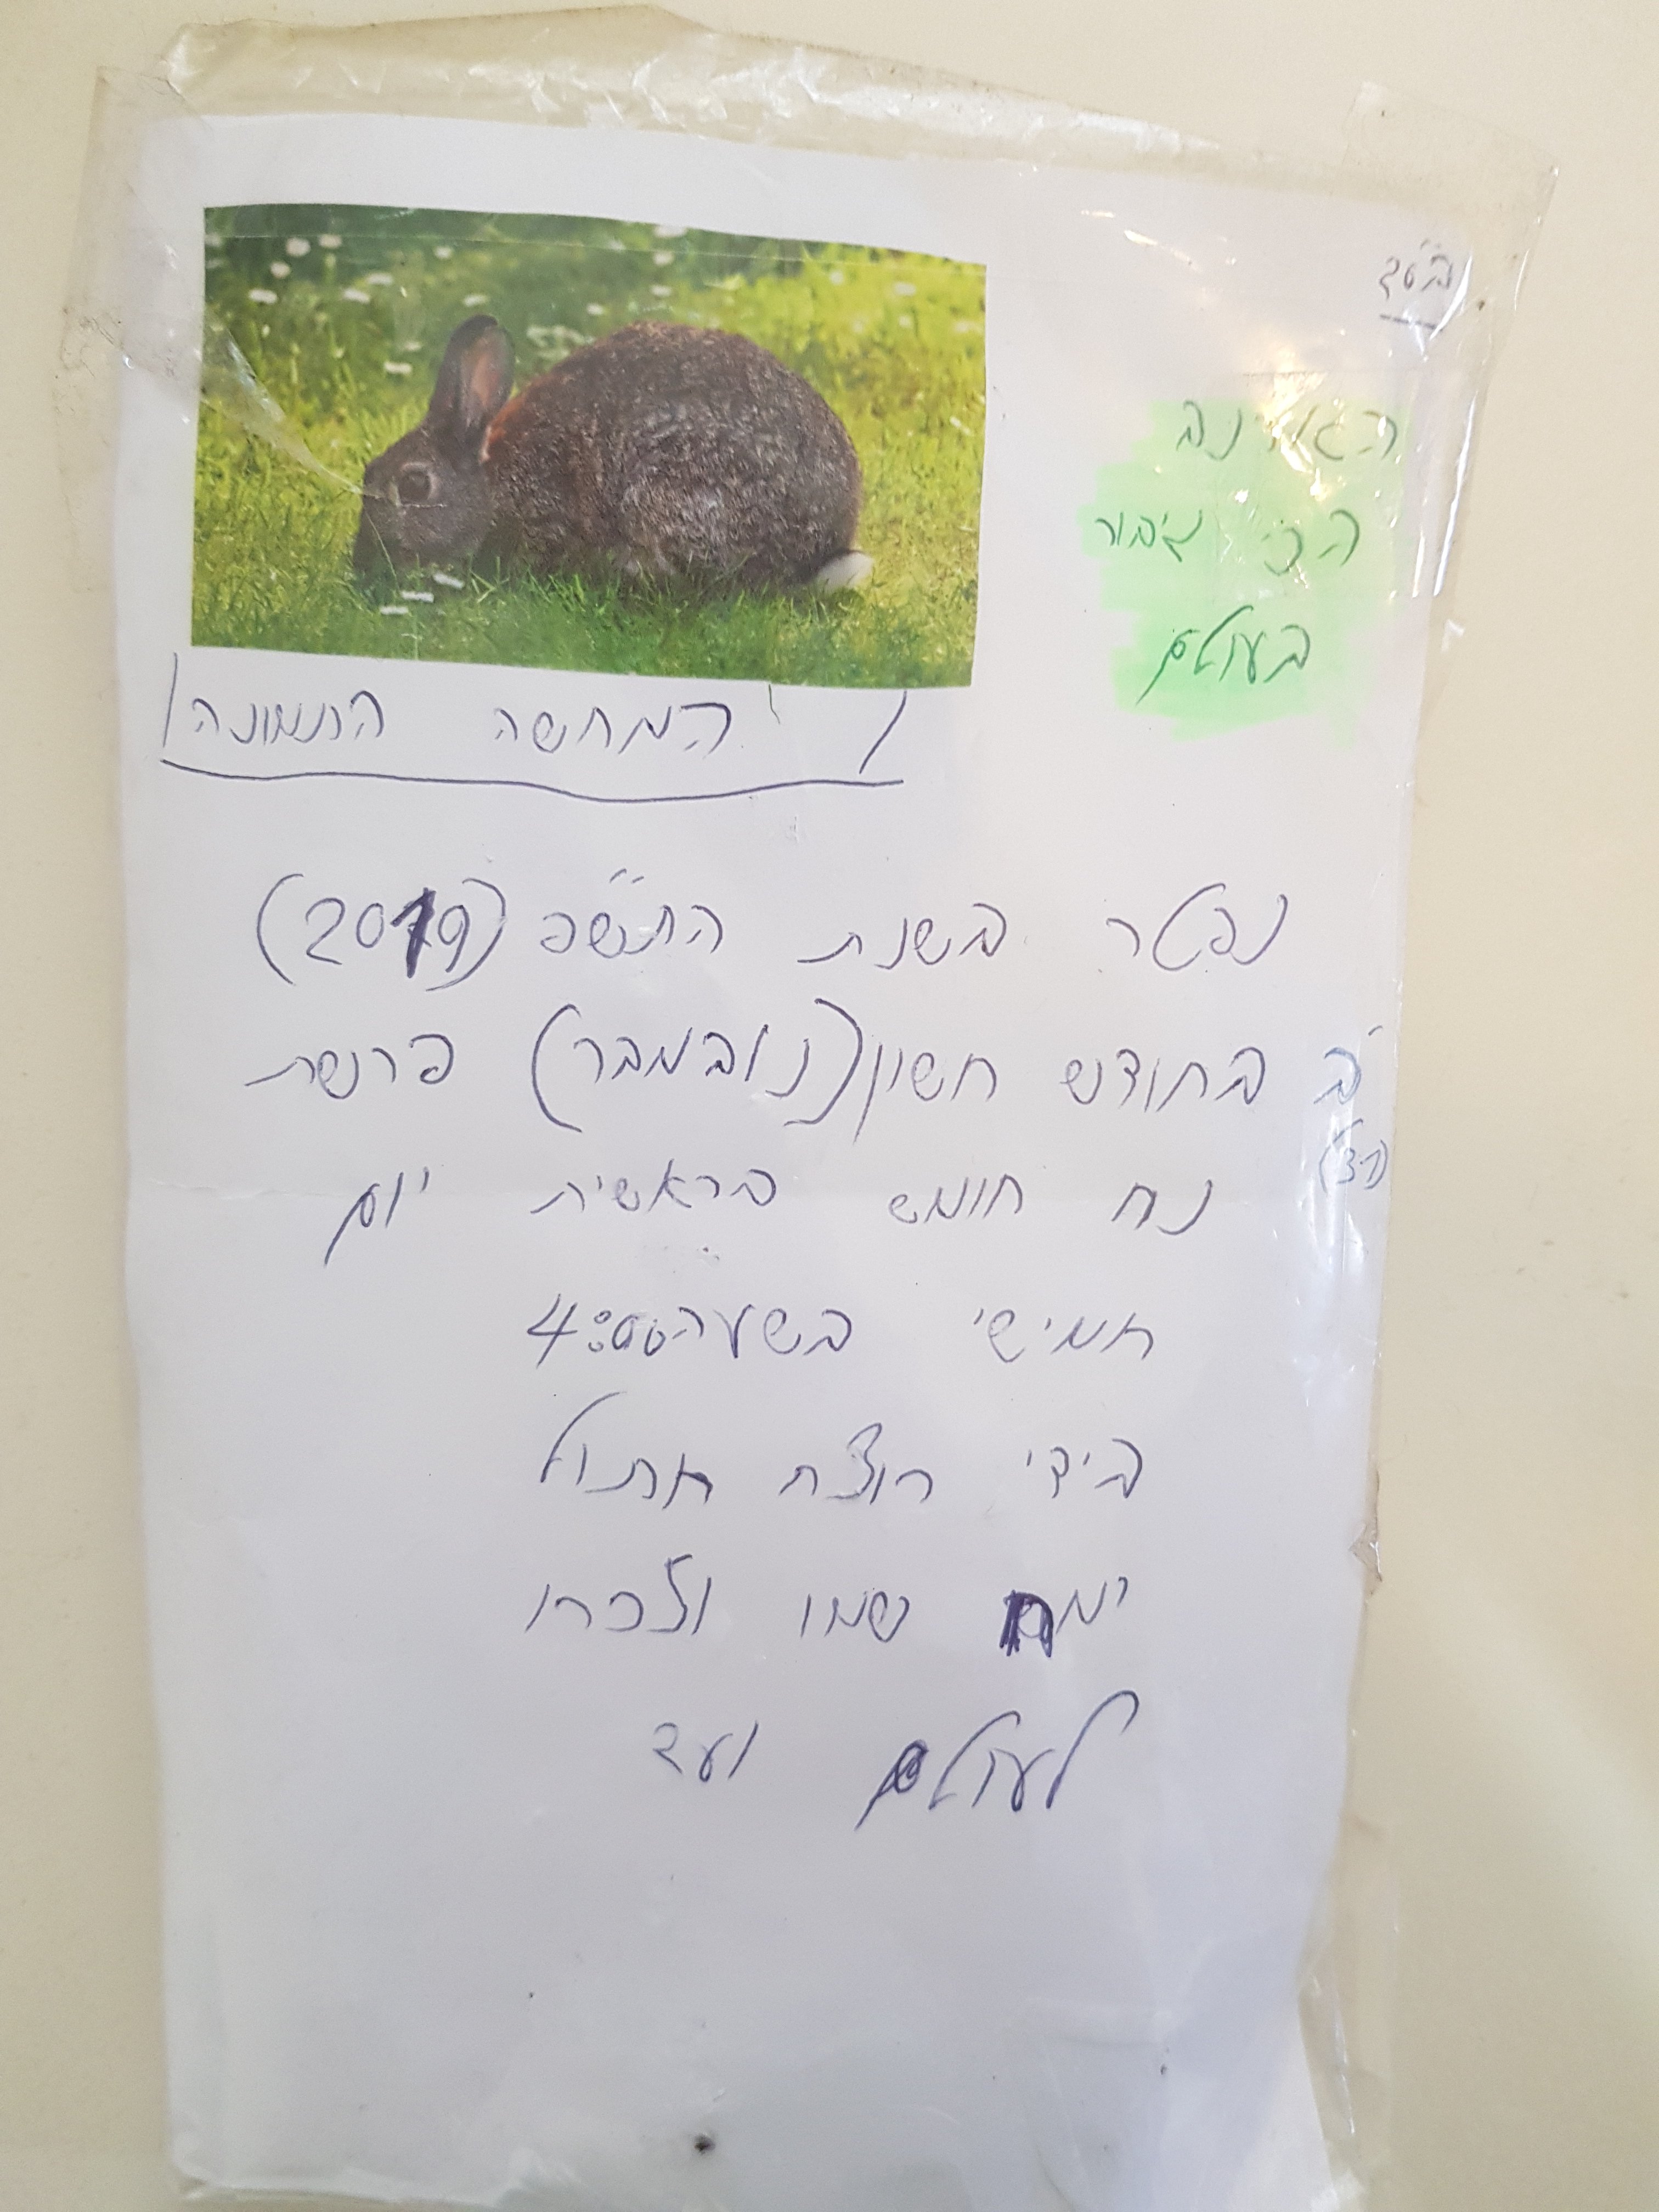 בס"ד
הארנב
הכי גיבור
בעולם
(המחשה התמונה)
נפטר בשנת התש"פ (2019)
ב' בחודש חשון (נובמבר) פרשת
נח חומש בראשית יום
חמישי בשעה 4:00
בידי רוצח חתול
ימח שמו וזכרו
לעולם ועד